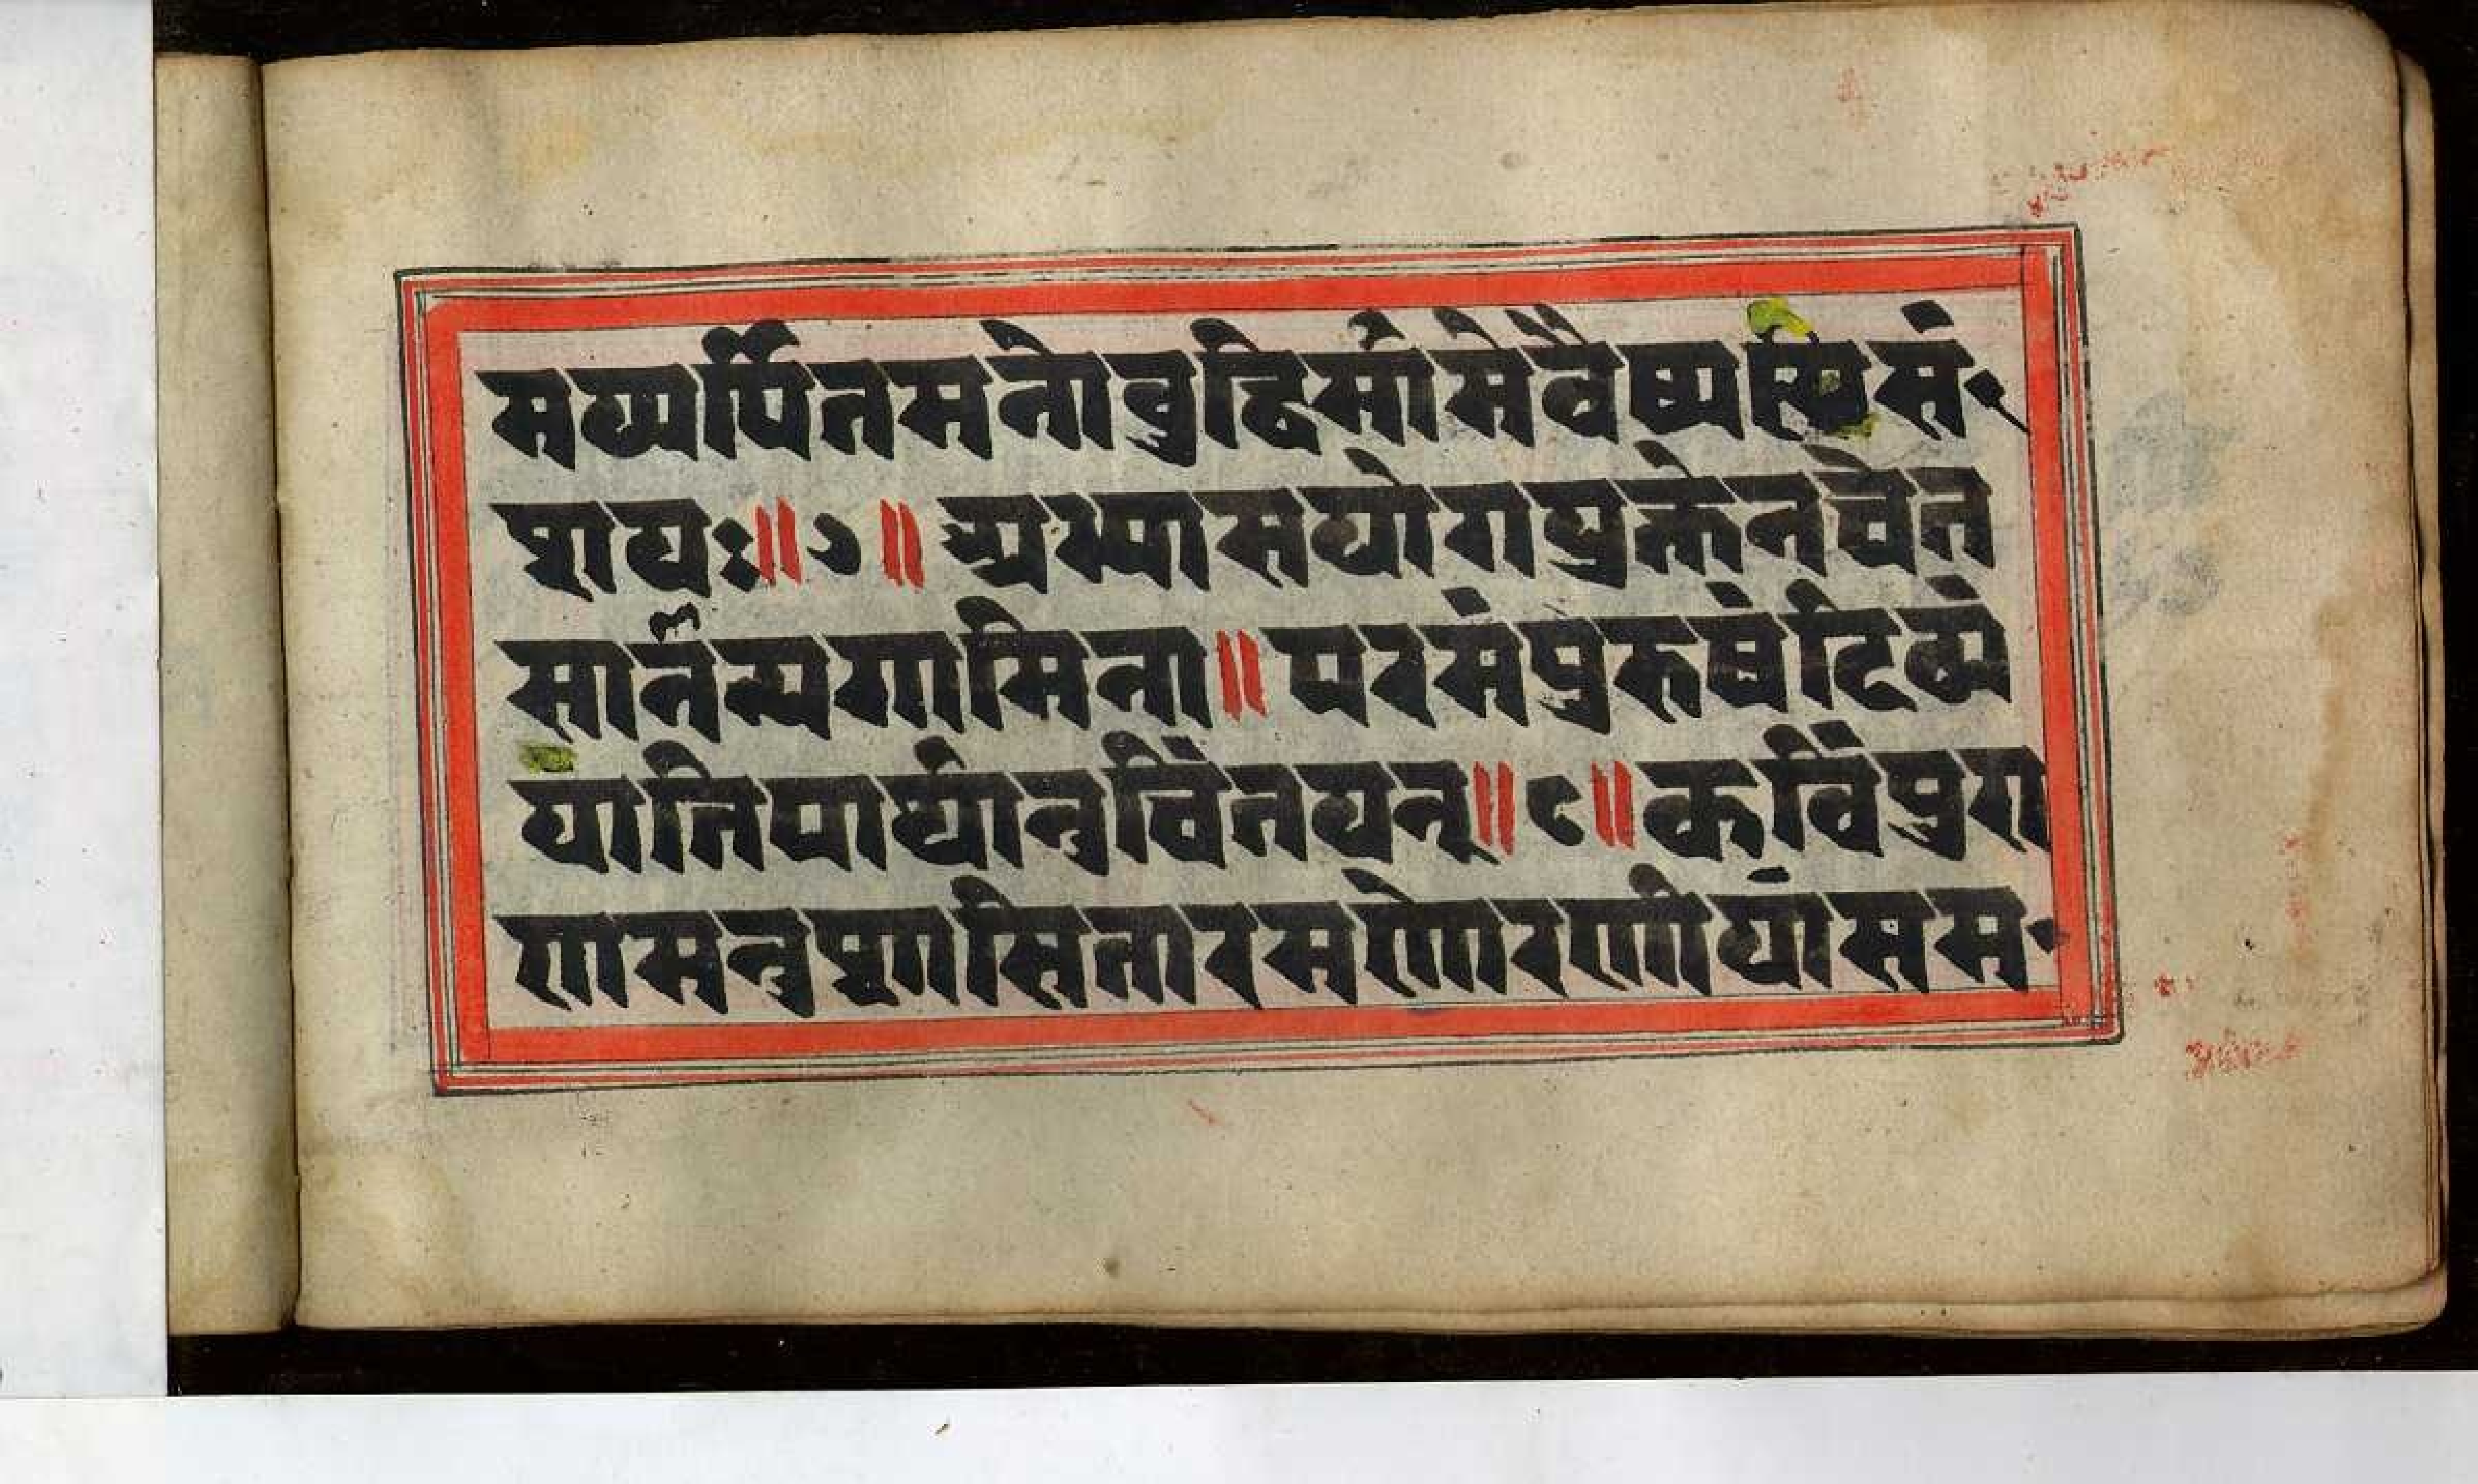 मय्यर्पितमनोबुद्धिर्मामेवैष्यस्यसं
शयः॥७॥अभ्यासयोगयुक्तेनचेत
सानन्यगामिना॥परमंपुरुषंदिव्यं
यातिपार्थानुचिंतयन्॥८॥कविंपुरा
णमनुशासितारमणोरणीयांसम